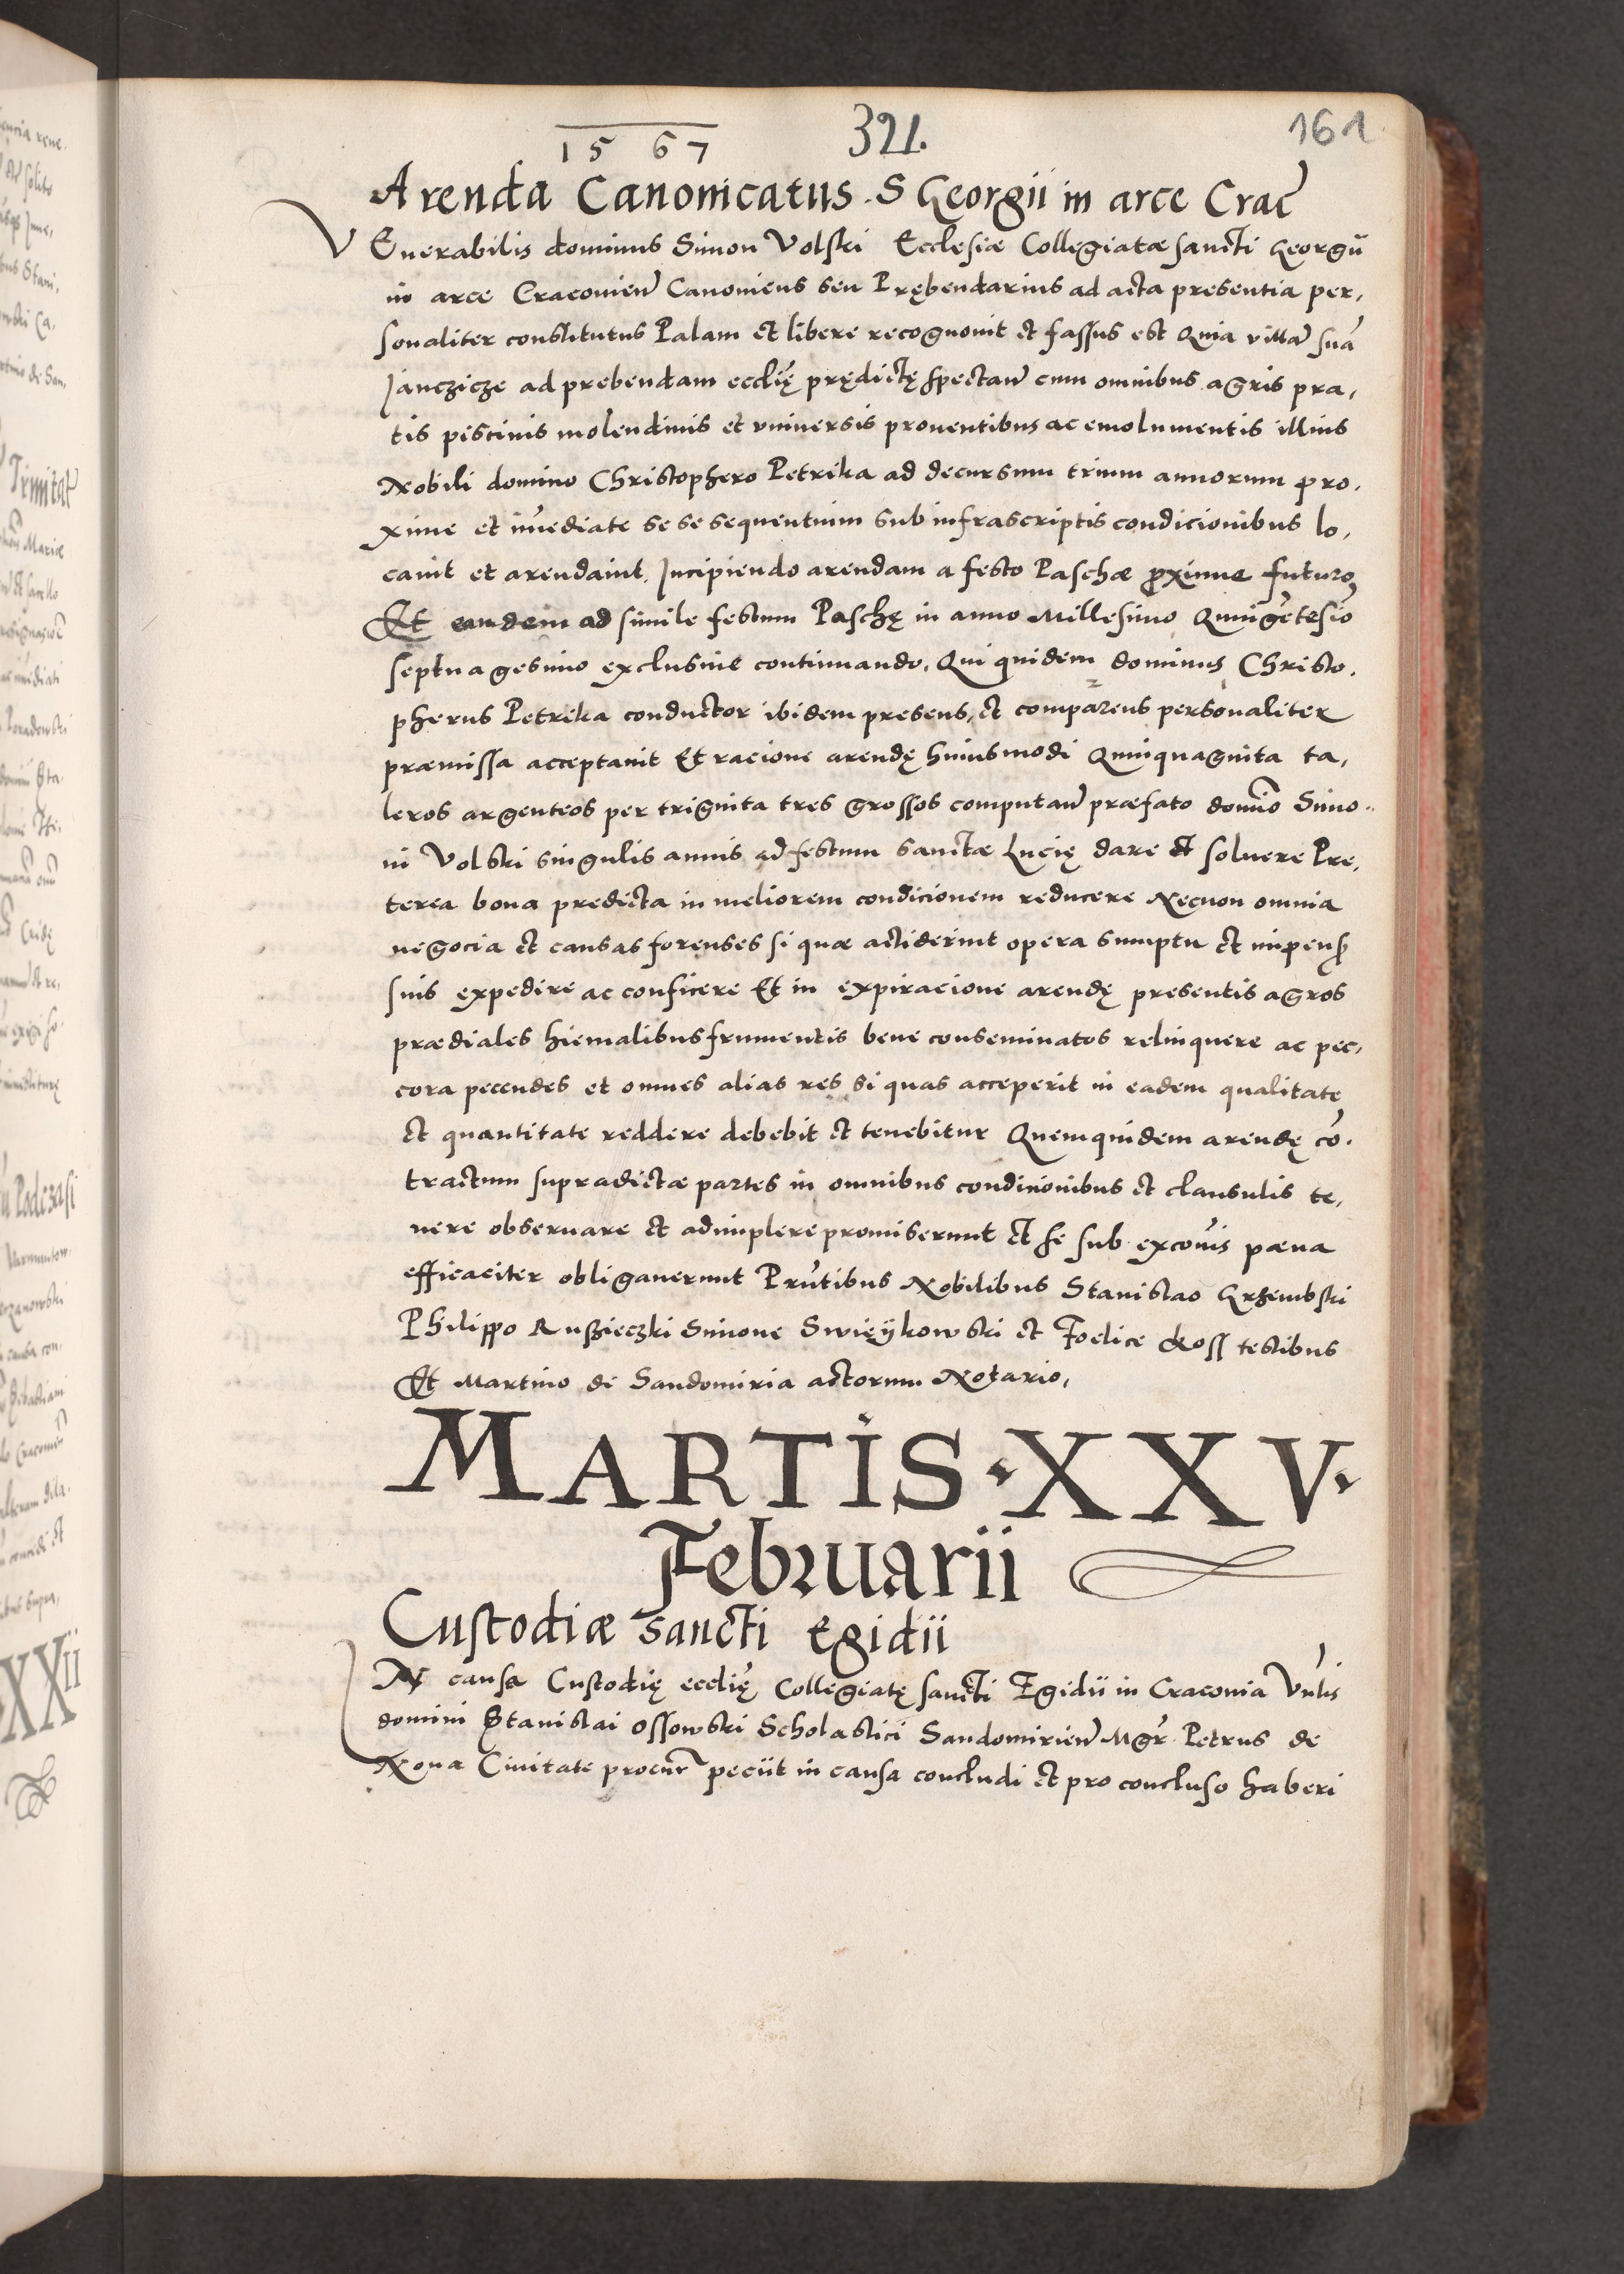 1567 321. 161
Arenda Canonicatus S Georgii in arce Crac̃
VEnerabilis dominus Simon Volski Ecclesiæ Collegiatæ sancti Georgii
in arce Cracovien̄ Canonicus seu Prębendarius ad acta presentia per,
sonaliter constitutus Palam et libere recognovit et fassus est Quia villā suā
Janczicze ad prebendam ecclię̄ prędictę spectan̄ cum omnibus agris pra,
tis piscinis molendinis et universis proventibus ac emolumentis illius
Nobili domino Christophero Petrika ad decursum trium annorum pro,
xime et im̄ediate se se sequentium sub infrascriptis condicionibus lo,
cavit et arendavit, Incipiendo arendam a festo Paschæ proxime futuro
Et eandem ad simile festum Paschę in anno Millesimo Quingētesīo
septuagesimo exclusive continuando, Qui quidem dominus Christo,
pherus Petrika conductor ibidem presens, et comparens personaliter
præmissa acceptavit Et racione arendę huiusmodi Quinquaginta ta,
leros argenteos per triginta tres grossos computan̄ præfato domīo Simo,
ni Volski singulis annis ad festum sanctæ Lucię dare et solvere Pre,
terea bona predicta in meliorem condicionem reducere Necnon omnia
negocia et causas forenses si quæ acciderint opera sumptu et impens̄
suis expedire ac conficere Et in expiracione arendę presentis agros
prædiales hiemalibus frumentis bene conseminatos relinquere ac pec,
cora pecudes et omnes alias res si quas acceperit in eadem qualitate
et quantitate reddere debebit et tenebitur Quemquidem arendę cō,
tractum supradictæ partes in omnibus condicionibus et clausulis te,
nere observare et adimplere promiserunt et se sub excōis pœna
efficaciter obligaverunt Pn̄tibus Nobilibus Stanislao Grzembski
Philippo Ruszieczki Simone Swięykowski et Foelice Koss testibus
Et Martino de Sandomiria actorum Notario,
MARTIS · XXV ·
Februarii
Custodiæ sancti Egidii
IN causa Custodię ecclię̄ Collegiatę sancti Egidii in Cracovia Vn̄lis
domini Stanislai Ossowski Scholastici Sandomirien̄ Mgr̄ Petrus de
Nova Civitate procur̄ peciit in causa concludi et pro concluso haberi